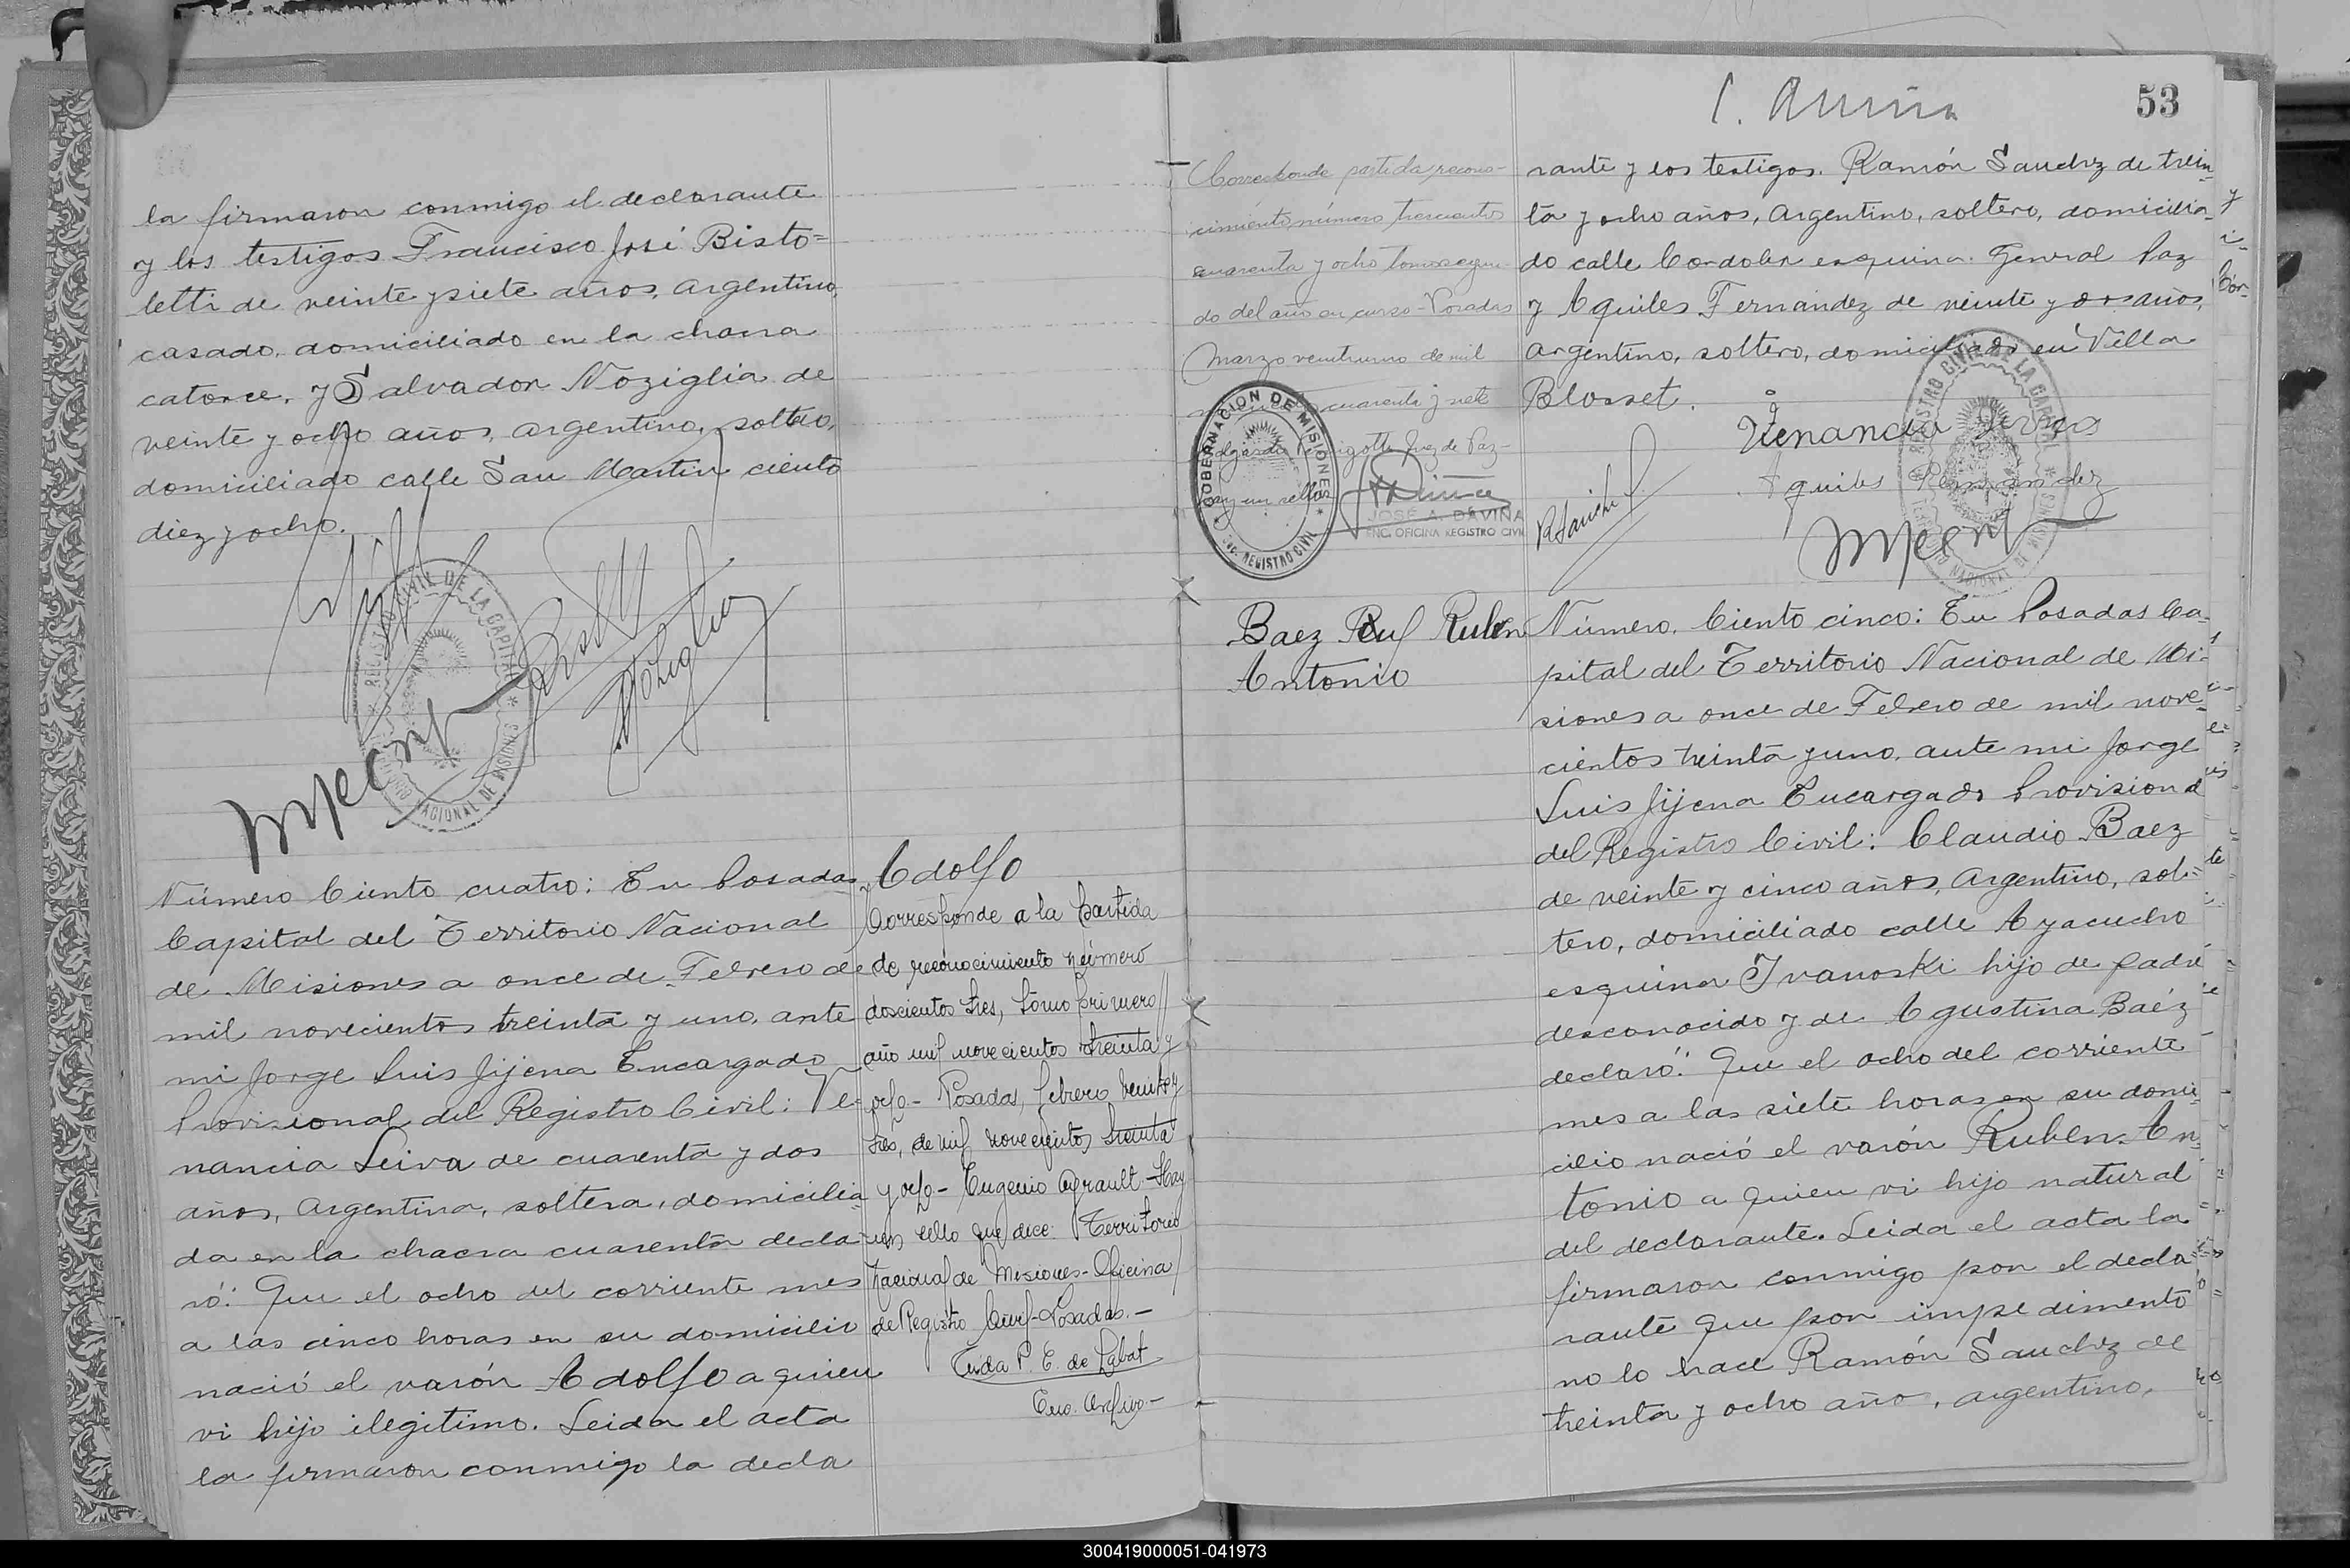 la firmaron conmigo el declarante
y los testigos Francisco José Bisto=
letti de veinte y siete años, argentino,
casado, domiciliado en la chacra
catorce, y Salvador Noziglia de
veinte y ocho años, argentino, soltero,
domiciliado calle San Martin ciento
diez y ocho.
REGISTRO CIVIL DE LA CAPITAL
NACIONAL DE MISIONES
Número Ciento cuatro: En Posadas
Capital del Territorio Nacional
de Misiones a once de Febrero de
mil novecientos treinta y uno, ante
mi Jorge Luis Jijena Encargado
Provisional del Registro Civil: Ve-
nancia Leiva de cuarenta y dos
años, Argentina, soltera, domicilia
da en la chacra cuarenta decla
ró: Que el ocho del corriente mes
a las cinco horas en su domicilio
nació el varón Adolfo a quien
vi hijo ilegitimo. Leida el acta
la firmaron conmigo la decla
Adolfo
Corresponde a la partida
de reconocimiento número
doscientos tres, tomo primero
año mil novecientos treinta y
ocho - Posadas, febrero veinte y
tres, de mil novecientos treinta
y ocho - Eugenio - Hay
un sello que dice: Territorio
Nacional de Misiones - Oficina
de Registro Civil - Posadas. -
P. E. de Labat
Enc. Archivo -
53
Corresponde partida recono-
cimiento número trescientos
cuarenta y ocho tomo segun
do del año en curso - Posadas
Marzo veintiuno de mil
cuarenta y siete
Juez de Paz -
hay un sello
GOBERNACION DE MISIONES
ENC. REGISTRO CIVIL
JOSÉ A. DAVIÑA
ENC. OFICINA REGISTRO CIVIL
rante y los testigos. Ramón Sanchez de trein
ta y ocho años, argentino, soltero, domicilia
do calle Cordoba esquina General Paz
y Aquiles Fernandez de veinte y dos años,
argentino, soltero, domiciliado en Villa
Blosset.
REGISTRO CIVIL DE LA CAPITAL
NACIONAL DE MISIONES
Venancia
Aquiles Fernandez
R Sanchez
Baez Ruben
Antonio
Número. Ciento cinco: En Posadas Ca-
pital del Territorio Nacional de Mi-
siones a once de Febrero de mil nove-
cientos treinta y uno, ante mi Jorge
Luis Jijena Encargado Provisional
del Registro Civil: Claudio Baez
de veinte y cinco años, Argentino, sol=
tero, domiciliado calle Ayacucho
esquina Ivanoski hijo de padre
desconocido y de Agustina Baéz
declaró: Que el ocho del corriente
mes a las siete horas en su domi
cilio nació el varón Ruben An
tonio a quien vi hijo natural
del declarante. Leida el acta la
firmaron conmigo por el decla
rante que por impedimento
no lo hace Ramón Sanchez de
treinta y ocho año, argentino,
300419000051-041973